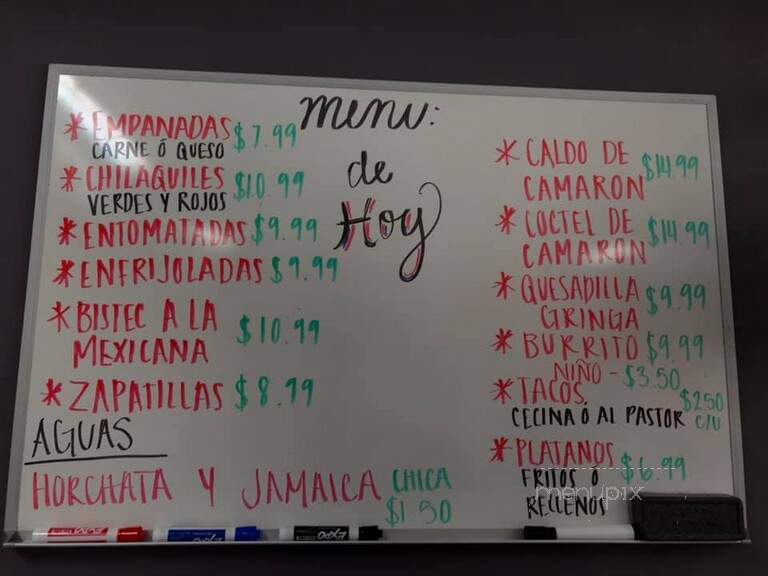 menu:
de
Hoy
* EMPANADAS $7.99
CARNE Ó QUESO
* CHILAQUILES $10.99
VERDES Y ROJOS
* ENTOMATADAS $9.99
* ENFRIJOLADAS $9.99
* BISTEC A LA
MEXICANA $10.99
* ZAPATILLAS $8.99
AGUAS
HORCHATA Y JAMAICA CHICA
$1.50
* CALDO DE
CAMARON $14.99
* COCTEL DE
CAMARON $14.99
* QUESADILLA
GRINGA $9.99
* BURRITO $9.99
NIÑO - $3.50
* TACOS. $2.50
CECINA Ó AL PASTOR C/U
* PLATANOS
FRITOS Ó $6.99
RELLENOS
menupix
EXPO
EXPO
EXPO